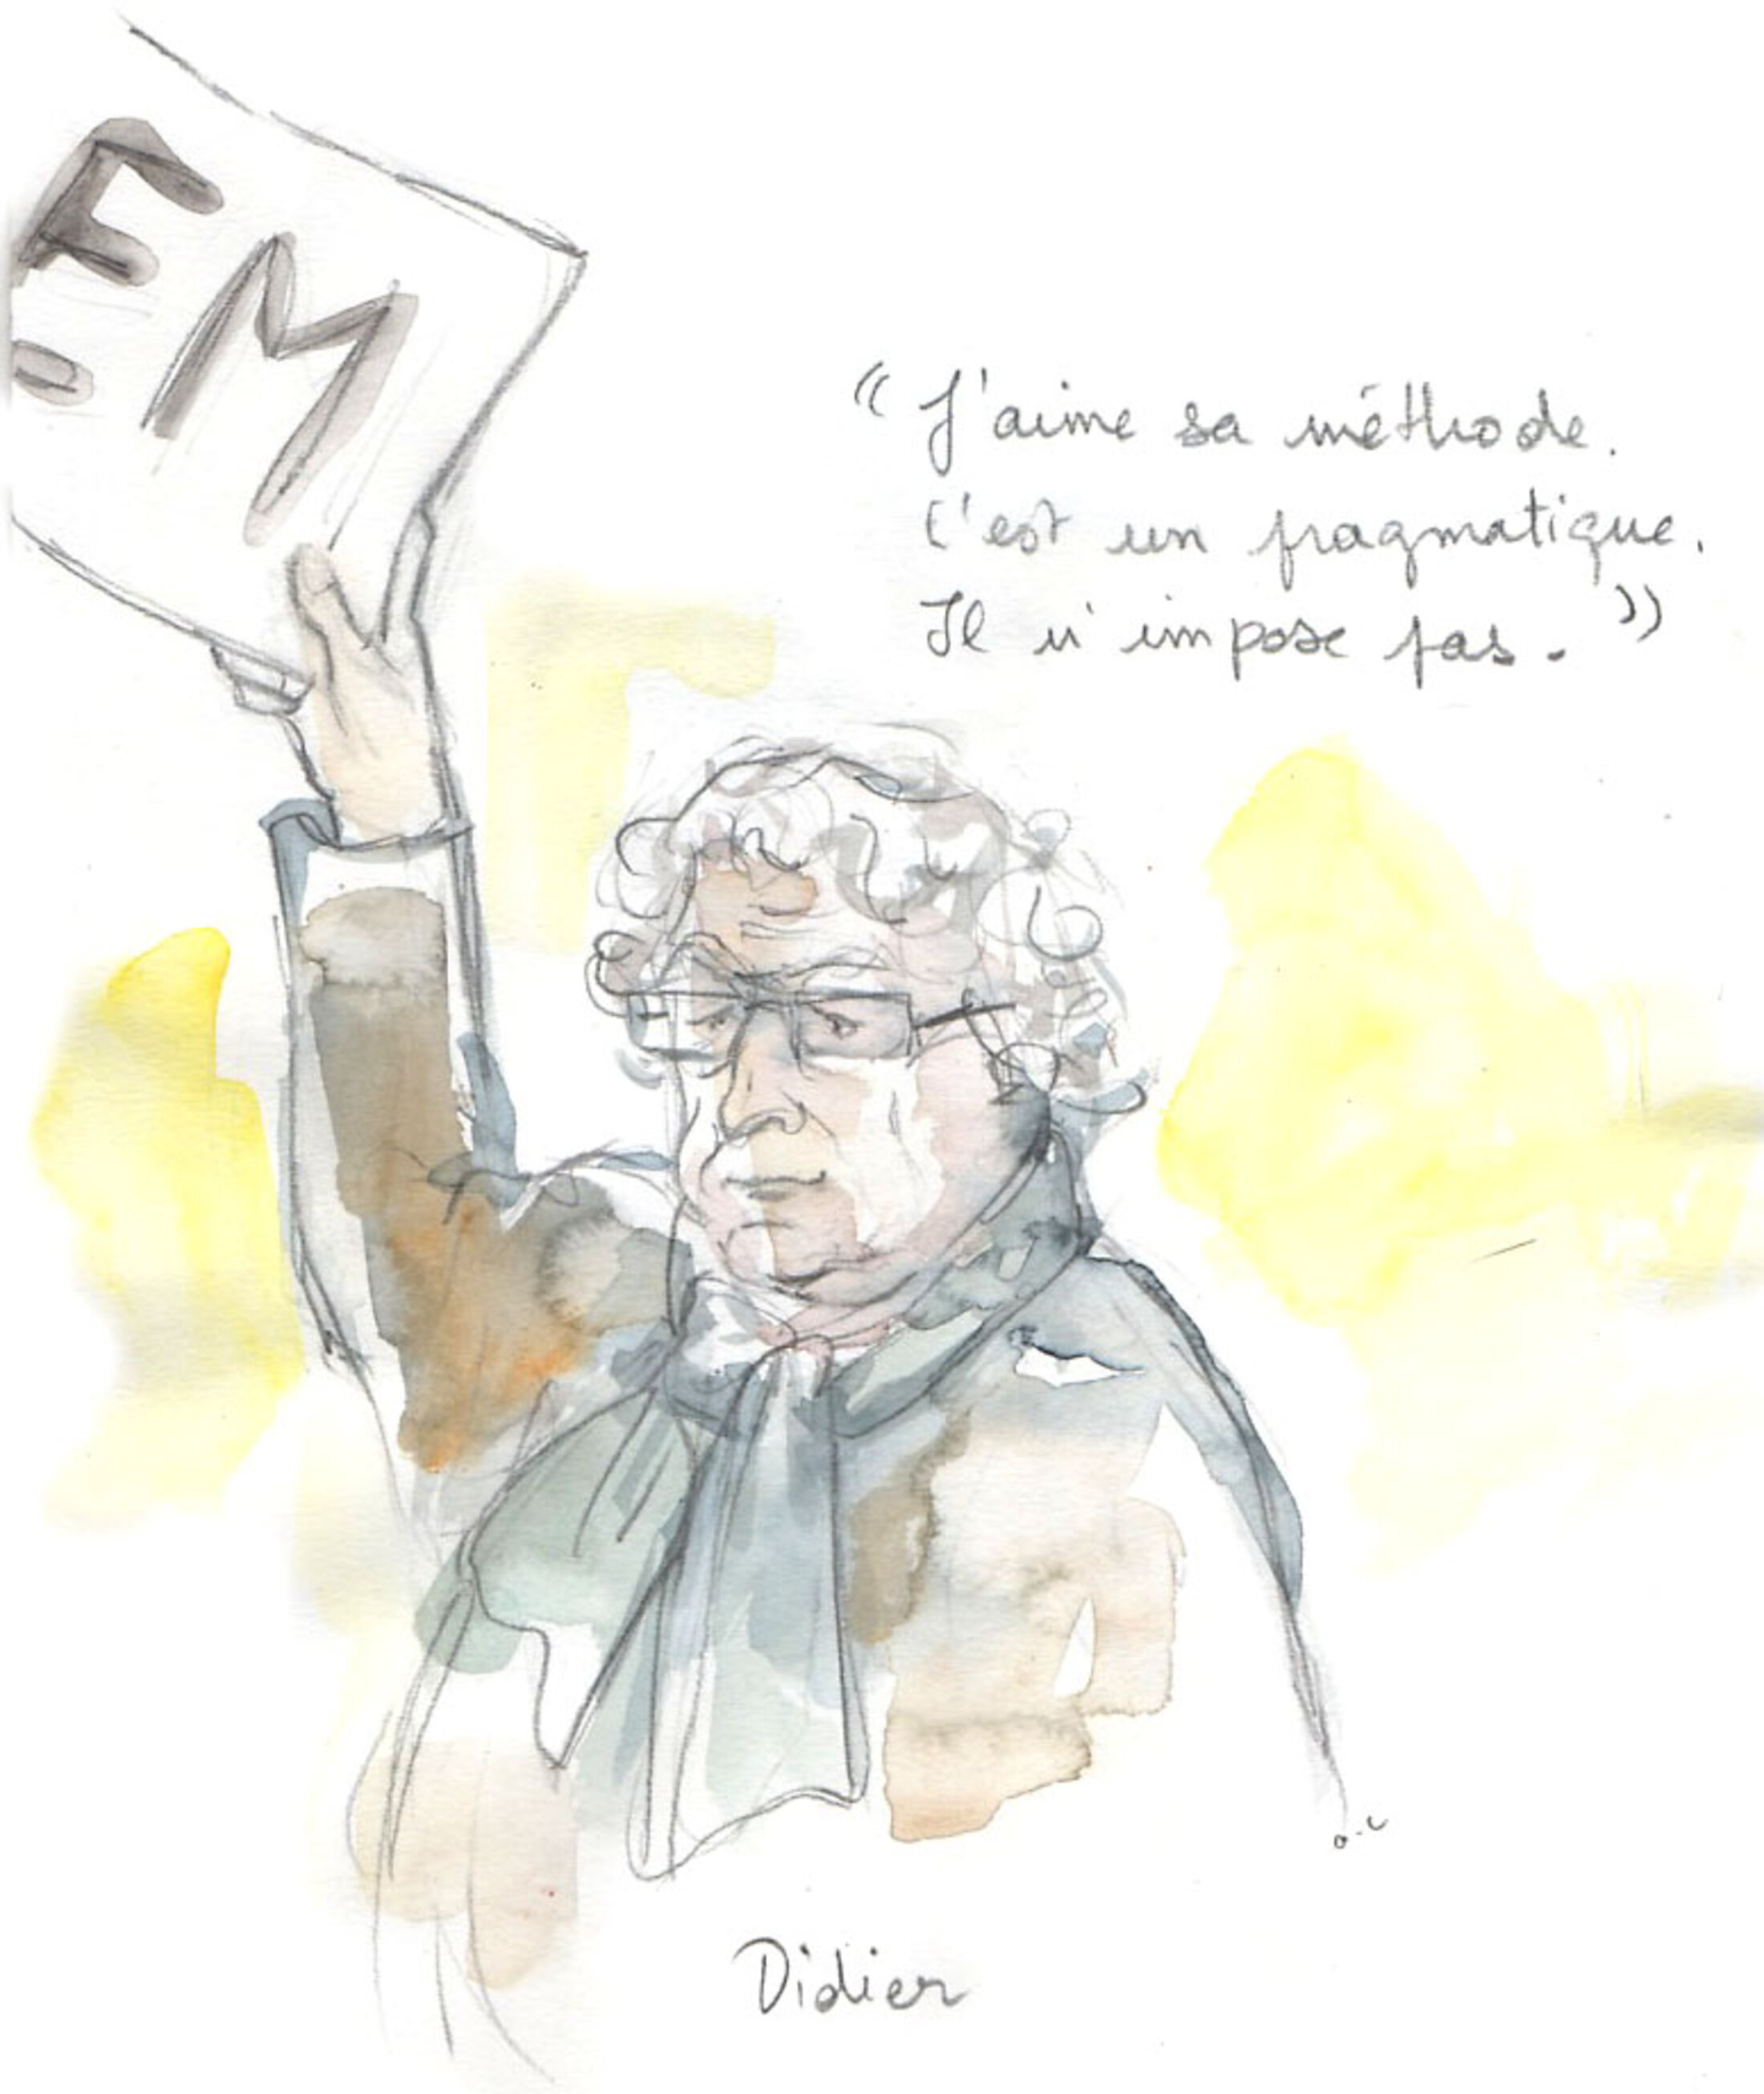 EM
« J'aime sa méthode.
C'est un pragmatique.
Il n'impose pas. »
a-c
Didier